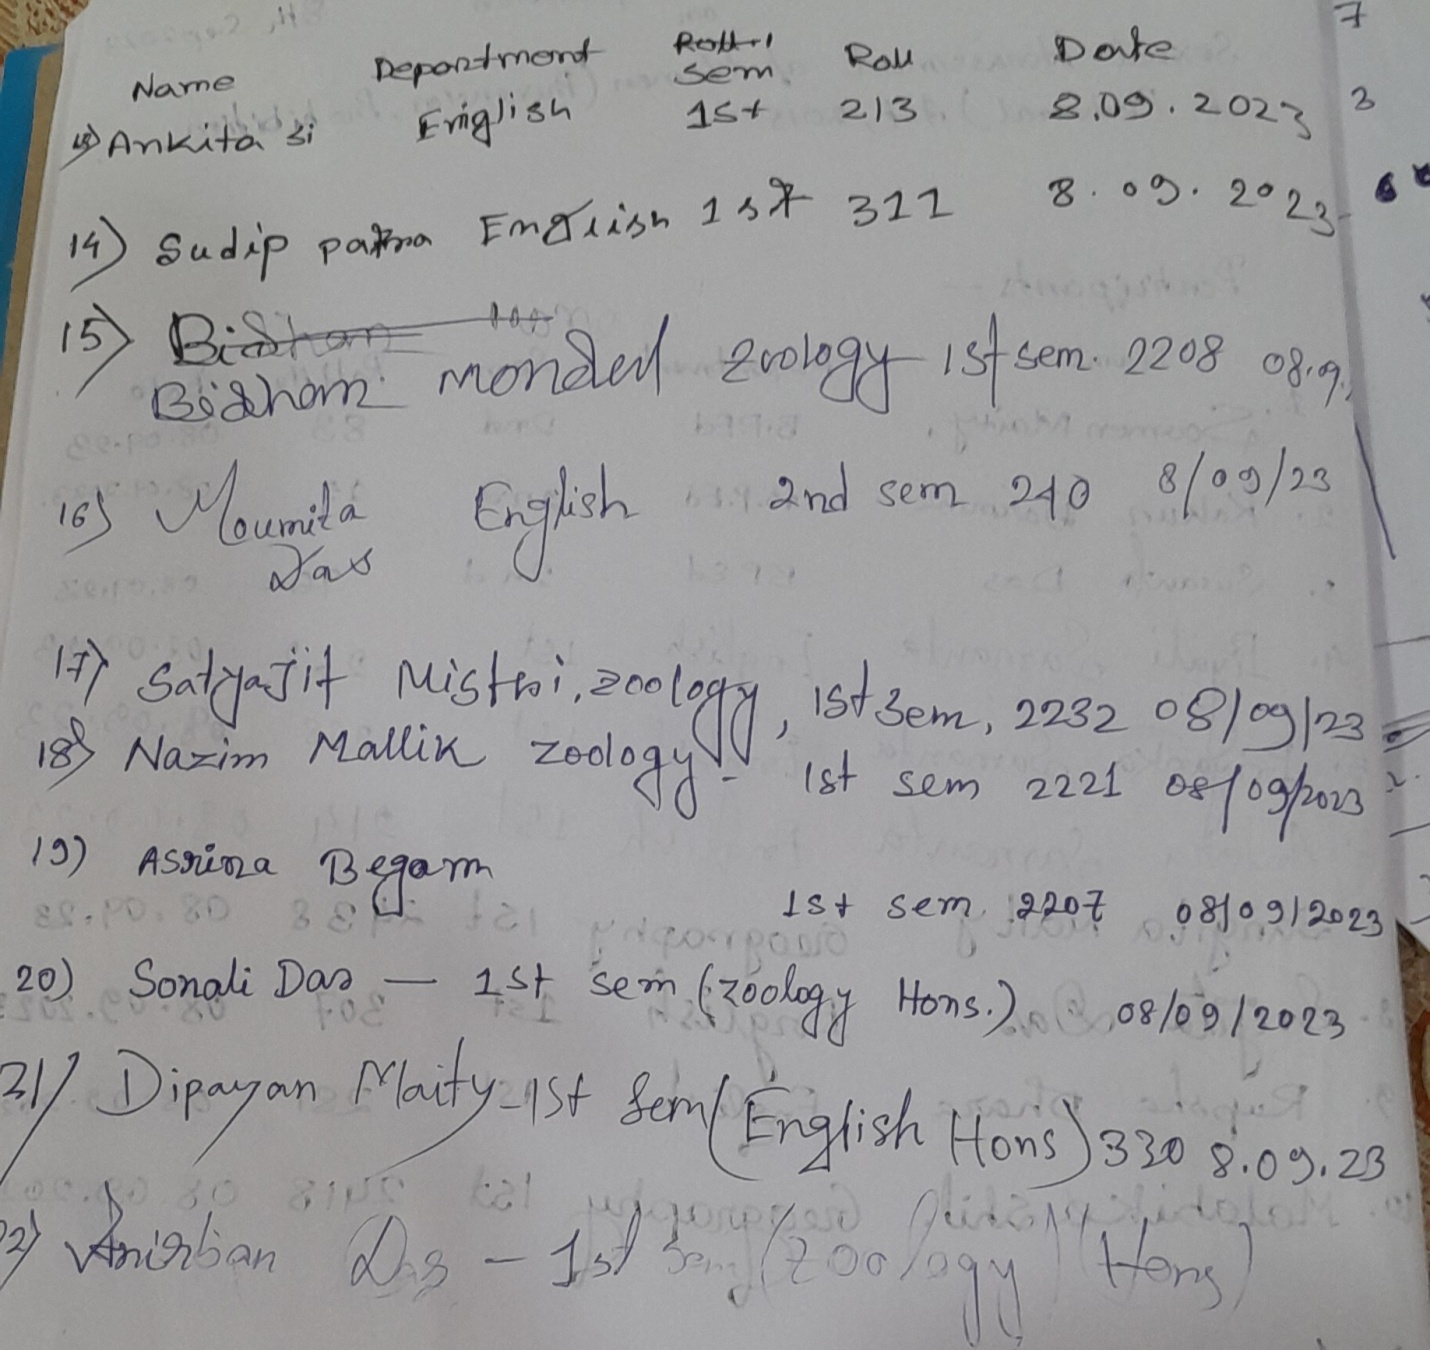 Name Department Sem Roll Date
13) Ankita si English 1st 213 8.09.2023
14) Sudip patra English 1st 311 8.09.2023
15) Bidhan
Bidhan mondal zoology 1st sem. 2208 08.9.
16) Moumita English 2nd sem 240 8/09/23
Das
17) Satyajit Mistri, zoology, 1st Sem, 2232 08/09/23
18) Nazim Mallik zoology - 1st sem 2221 08/09/2023
19) Asrina Begam
1st sem 2207 08/09/2023
20) Sonali Das — 1st sem (zoology Hons.) 08/09/2023
21) Dipayan Maity - 1st Sem (English Hons) 330 8.09.23
2) Anirban Das - 1st Sem (Zoology Hons)